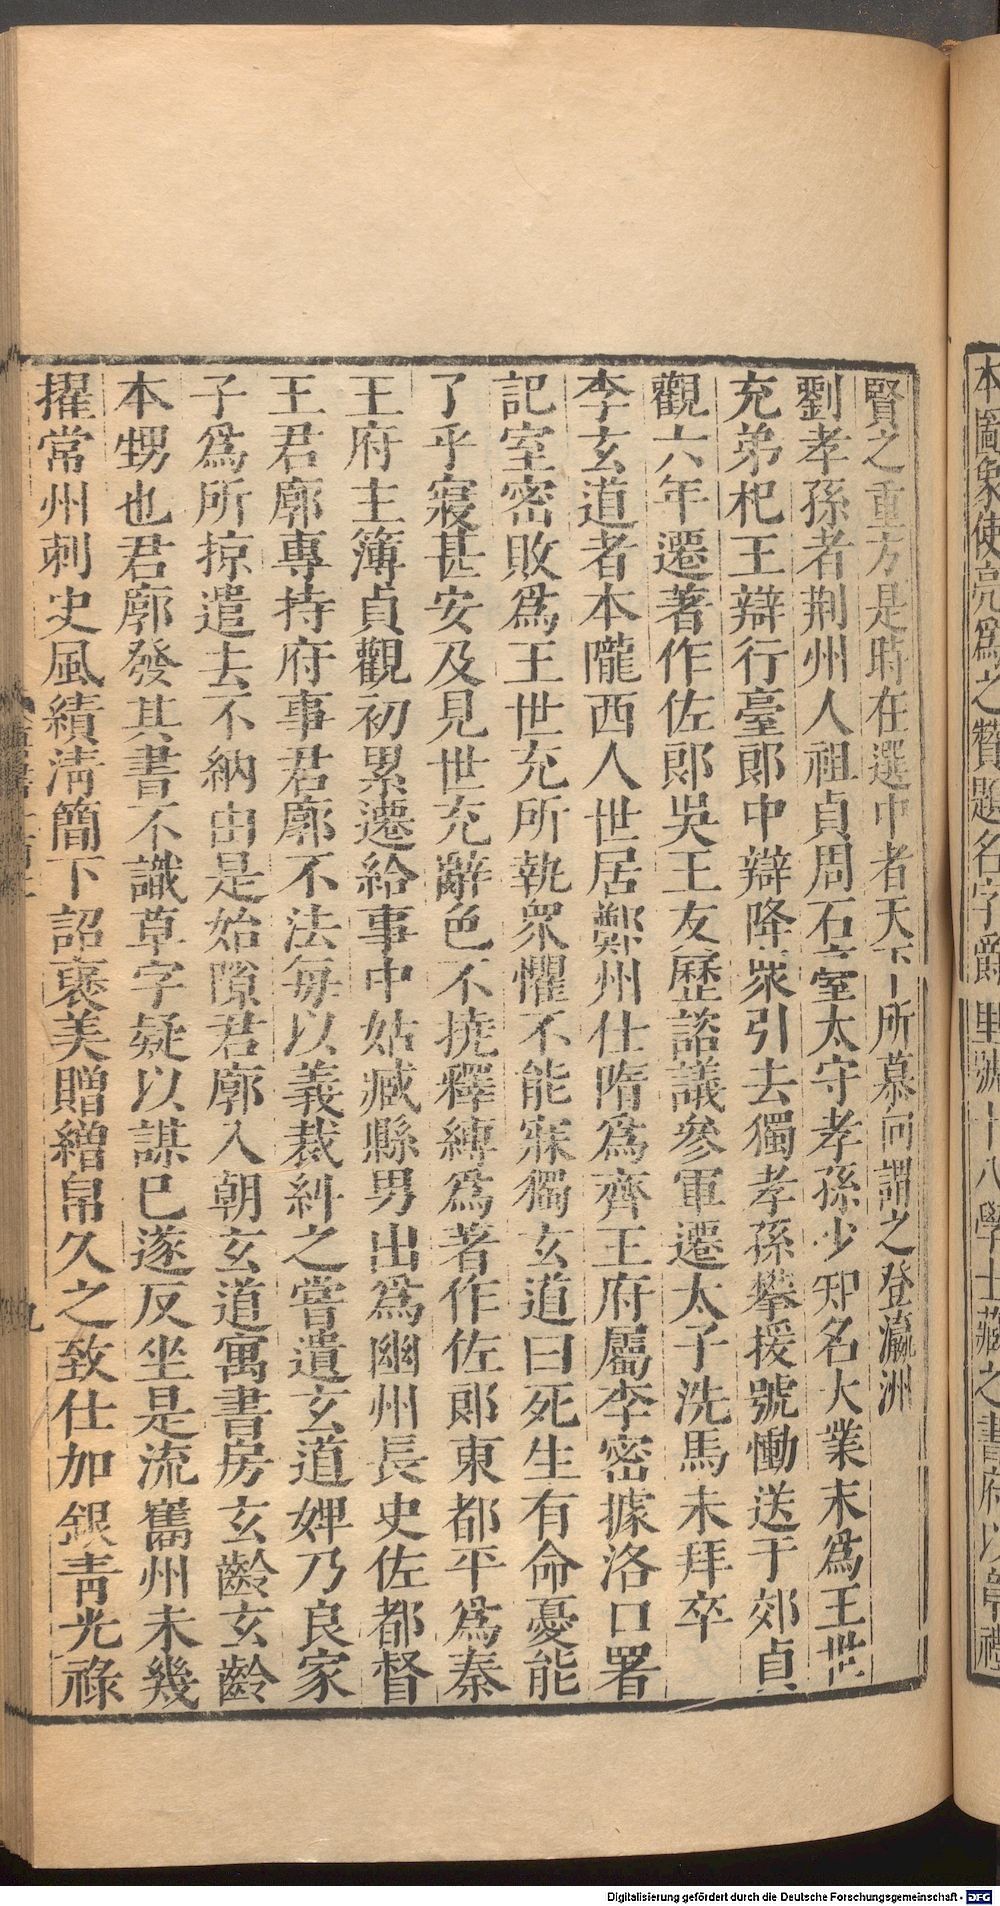 本圖象使亮爲之贊題名字爵里號十八學士藏之書府以章禮
賢之重方是時在選中者天下所慕向謂之登瀛洲
劉孝孫者荆州人祖貞周石室太守孝孫少知名大業末爲王世
充弟杞王辯行臺郎中辯降衆引去獨孝孫攀援號慟送于郊貞
觀六年遷著作佐郎吳王友歷諮議參軍遷太子洗馬未拜卒
李玄道者本隴西人世居鄭州仕隋爲齊王府屬李密據洛口署
記室密敗爲王世充所執衆懼不能寐獨玄道曰死生有命憂能
了乎寢甚安及見世充辭色不撓釋縛爲著作佐郎東都平爲秦
王府主簿貞觀初累遷給事中姑臧縣男出爲幽州長史佐都督
王君廓專持府事君廓不法每以義裁糾之嘗遺玄道婢乃良家
子爲所掠遣去不納由是始隙君廓入朝玄道寓書房玄齡玄齡
本甥也君廓發其書不識草字疑以謀已遂反坐是流巂州未幾
擢常州刺史風績清簡下詔褒美贈繒帛久之致仕加銀青光祿
九
Digitalisierung gefördert durch die Deutsche Forschungsgemeinschaft - DFG